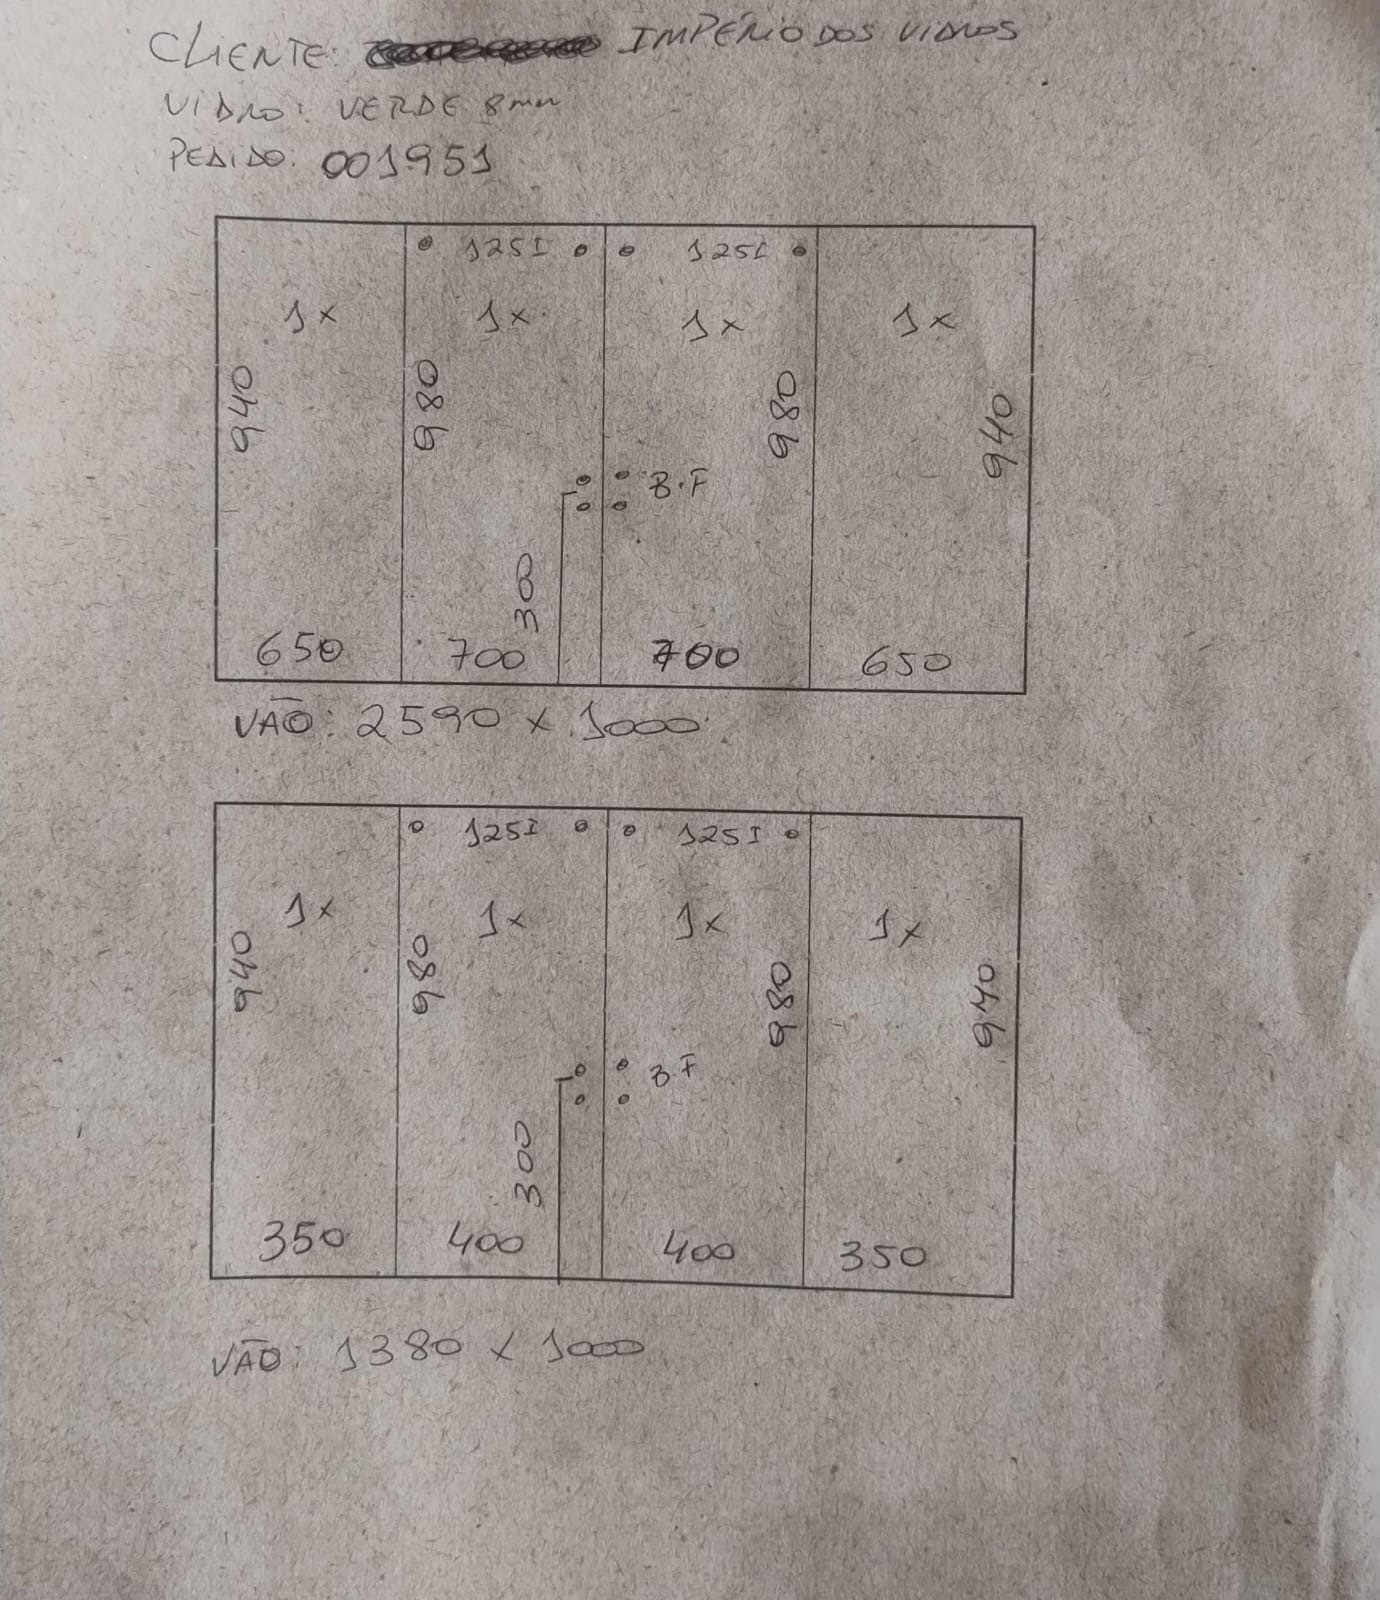 CLIENTE: IMPÉRIO DOS VIDROS
VIDRO: VERDE 8mm
PEDIDO: 001951
125I 125I
1x 1x 1x 1x
940 980 980 940
B.F
300
650 700 700 650
VÃO: 2590 x 1000
125I 125I
1x 1x 1x 1x
940 980 980 940
B.F
300
350 400 400 350
VÃO: 1380 x 1000